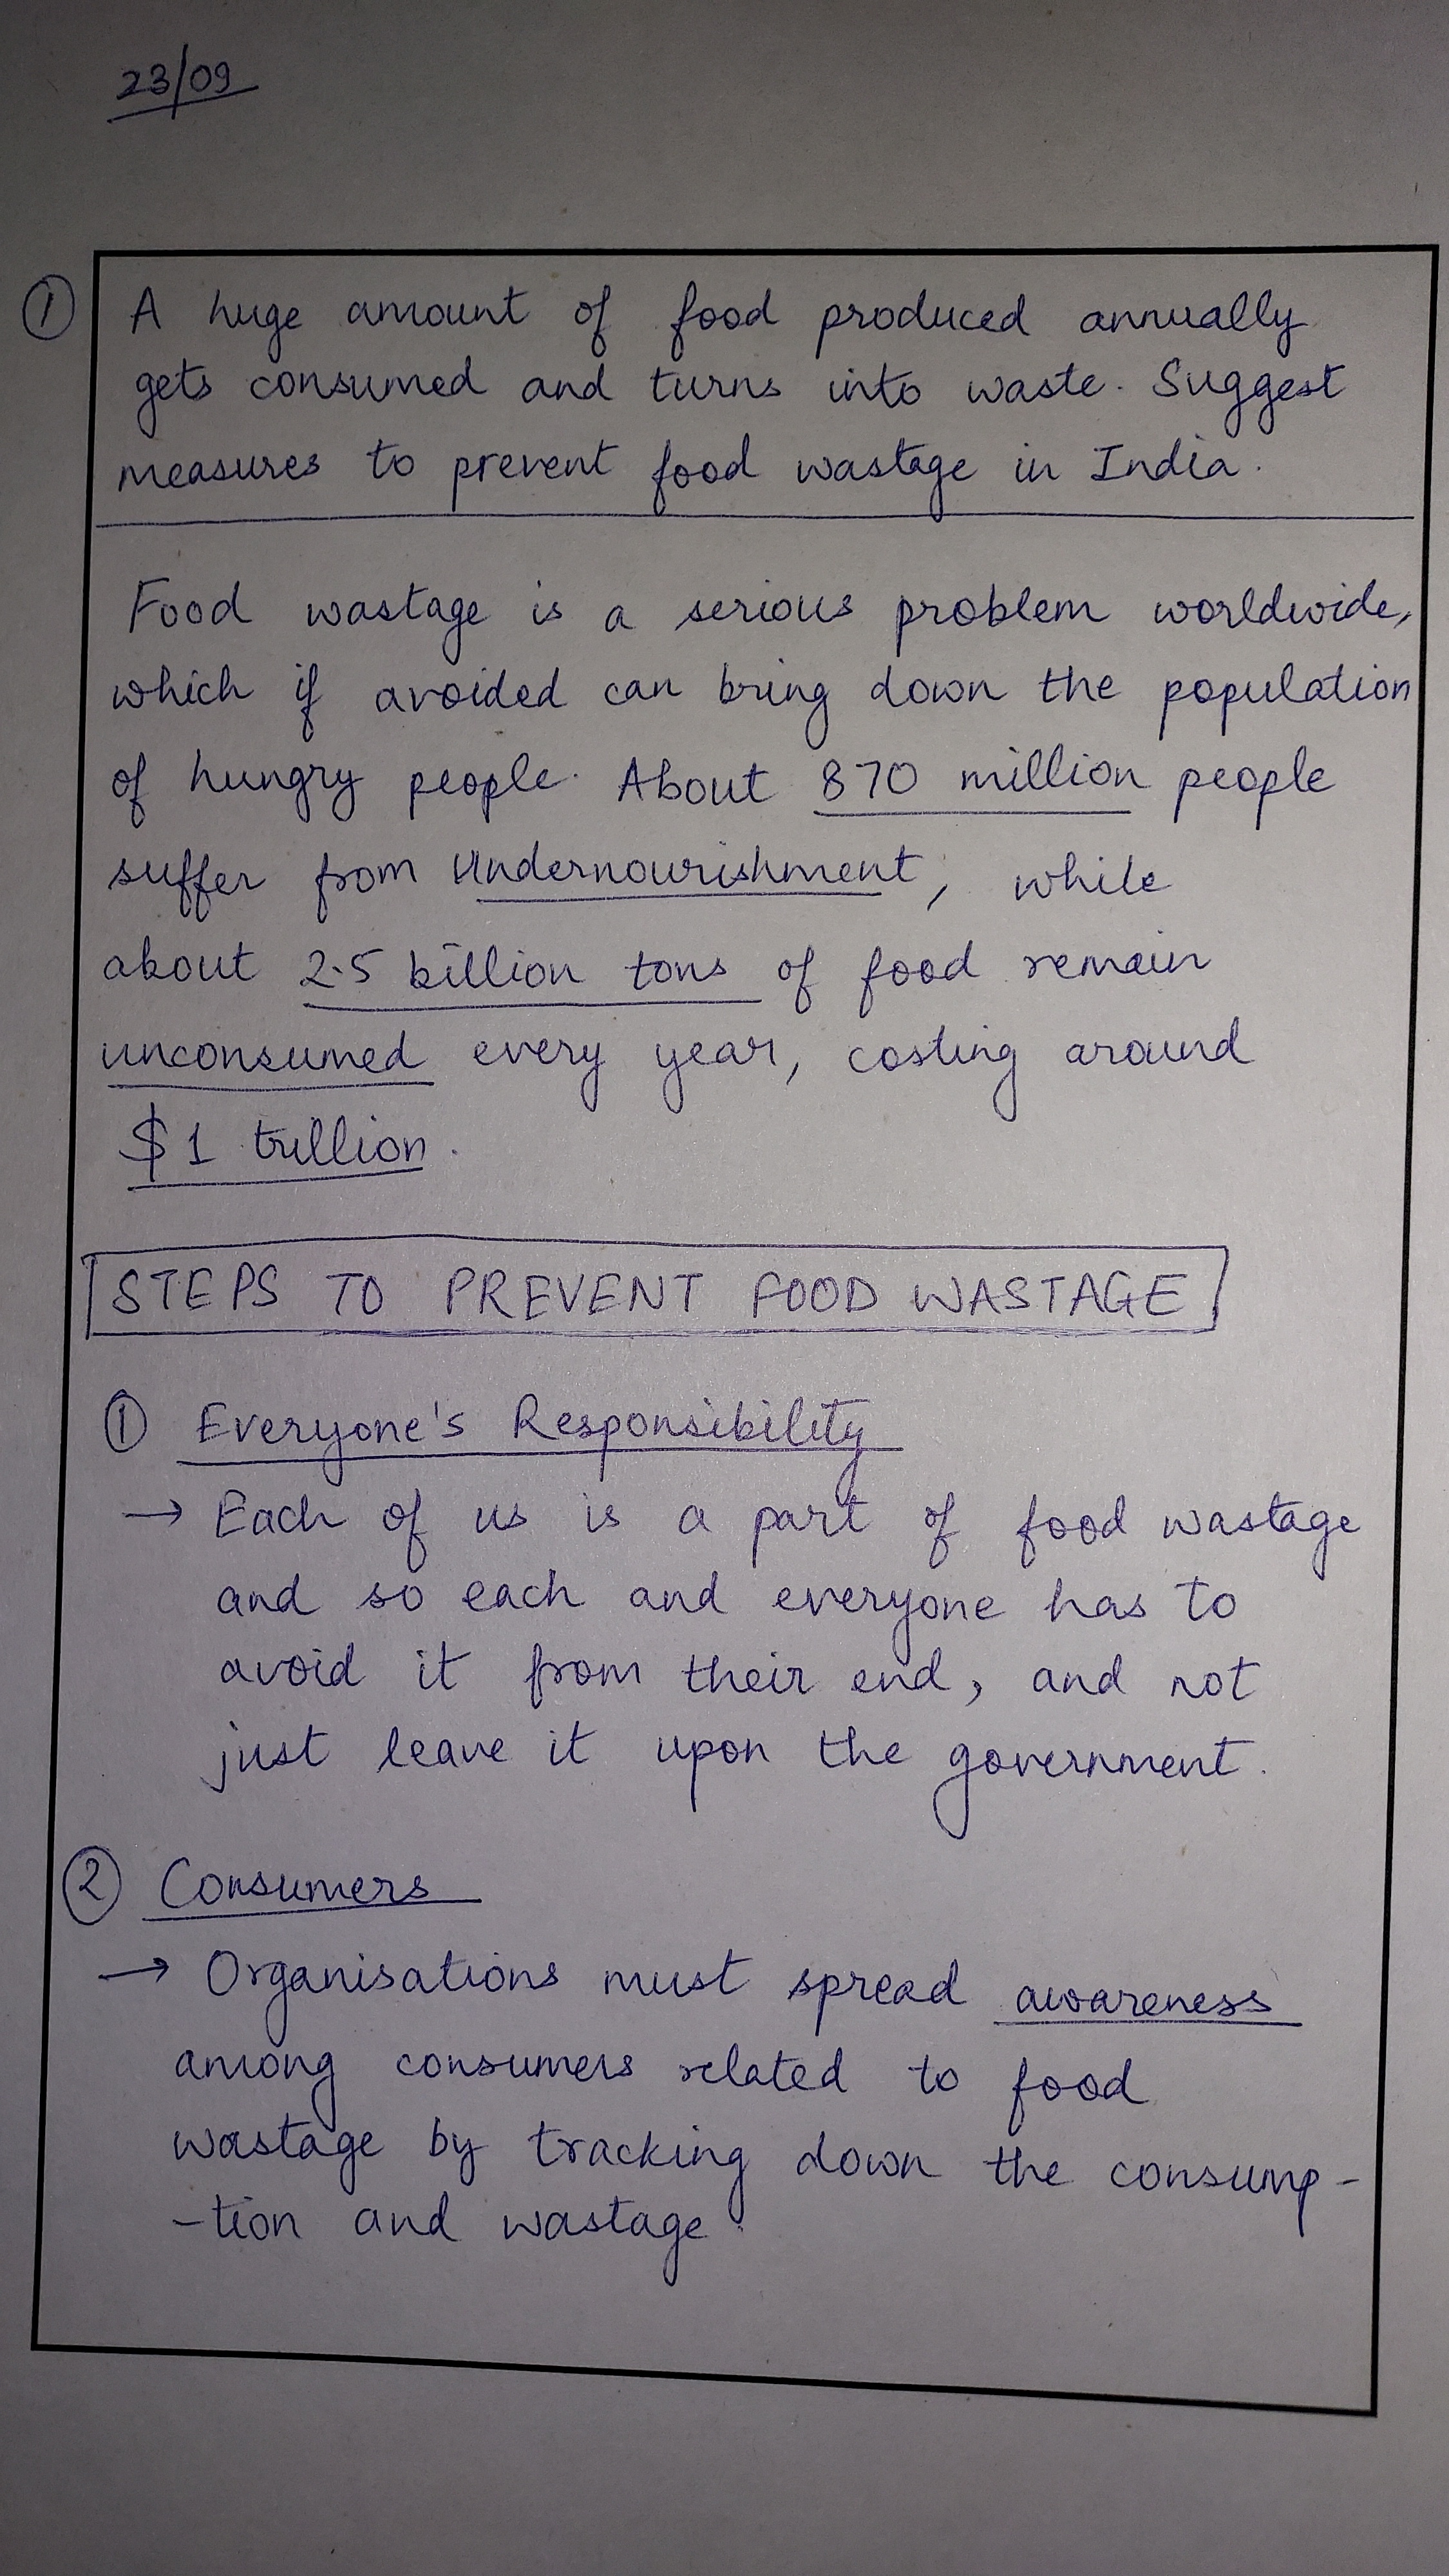 23/09
① A huge amount of food produced annually
gets consumed and turns into waste. Suggest
measures to prevent food wastage in India.
Food wastage is a serious problem worldwide,
which if avoided can bring down the population
of hungry people. About 870 million people
suffer from Undernourishment, while
about 2.5 billion tons of food remain
unconsumed every year, costing around
$1 trillion.
STEPS TO PREVENT FOOD WASTAGE
① Everyone's Responsibility
→ Each of us is a part of food wastage
and so each and everyone has to
avoid it from their end, and not
just leave it upon the government.
② Consumers
→ Organisations must spread awareness
among consumers related to food
wastage by tracking down the consump-
-tion and wastage.